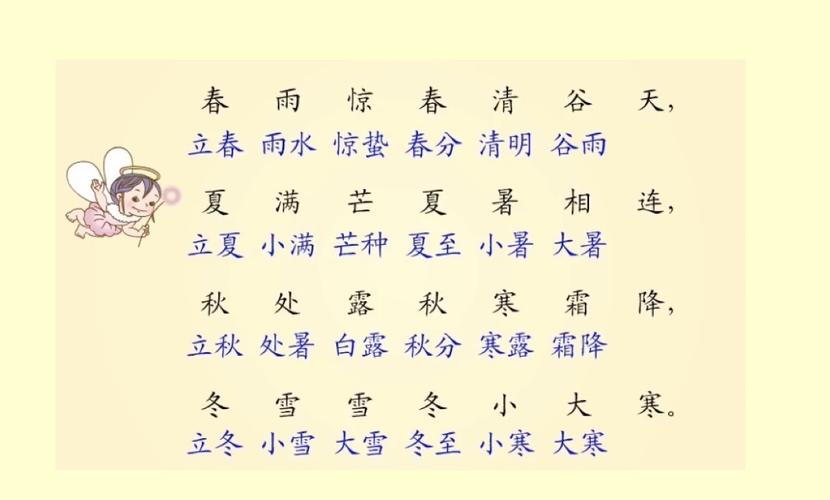 春 雨 惊 春 清 谷 天，
立春 雨水 惊蛰 春分 清明 谷雨
夏 满 芒 夏 暑 相 连，
立夏 小满 芒种 夏至 小暑 大暑
秋 处 露 秋 寒 霜 降，
立秋 处暑 白露 秋分 寒露 霜降
冬 雪 雪 冬 小 大 寒。
立冬 小雪 大雪 冬至 小寒 大寒